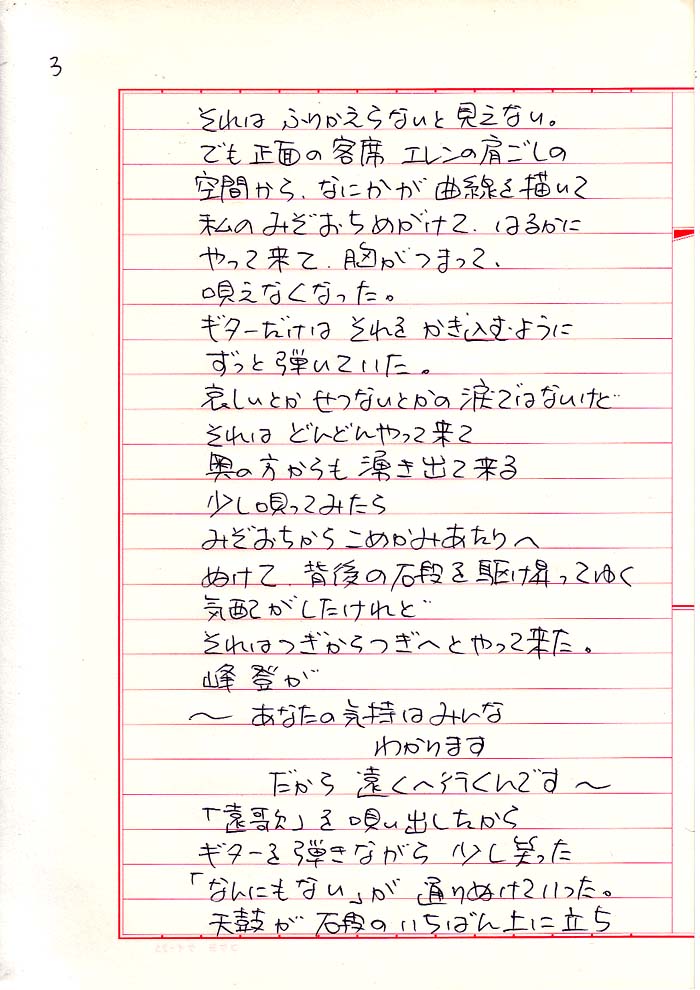 3
それは ふりかえらないと見えない。
でも正面の客席 エレンの肩ごしの
空間から、なにかが曲線を描いて
私のみぞおちめがけて、はるかに
やって来て、胸がつまって、
唄えなくなった。
ギターだけは それを かき込むように
ずっと弾いていた。
哀しいとか せつないとかの涙ではないけど
それは どんどんやって来て
奥の方からも 湧き出て来る
少し唄ってみたら
みぞおちから こめかみあたりへ
ぬけて、背後の石段を駆け昇ってゆく
気配がしたけれど
それはつぎからつぎへとやって来た。
峰 登が
〜 あなたの気持はみんな
わかります
だから 遠くへ行くんです〜
「遠歌」を唄い出したから
ギターを弾きながら 少し笑った
「なんにもない」が 通りぬけていった。
天鼓が 石段のいちばん上に立ち